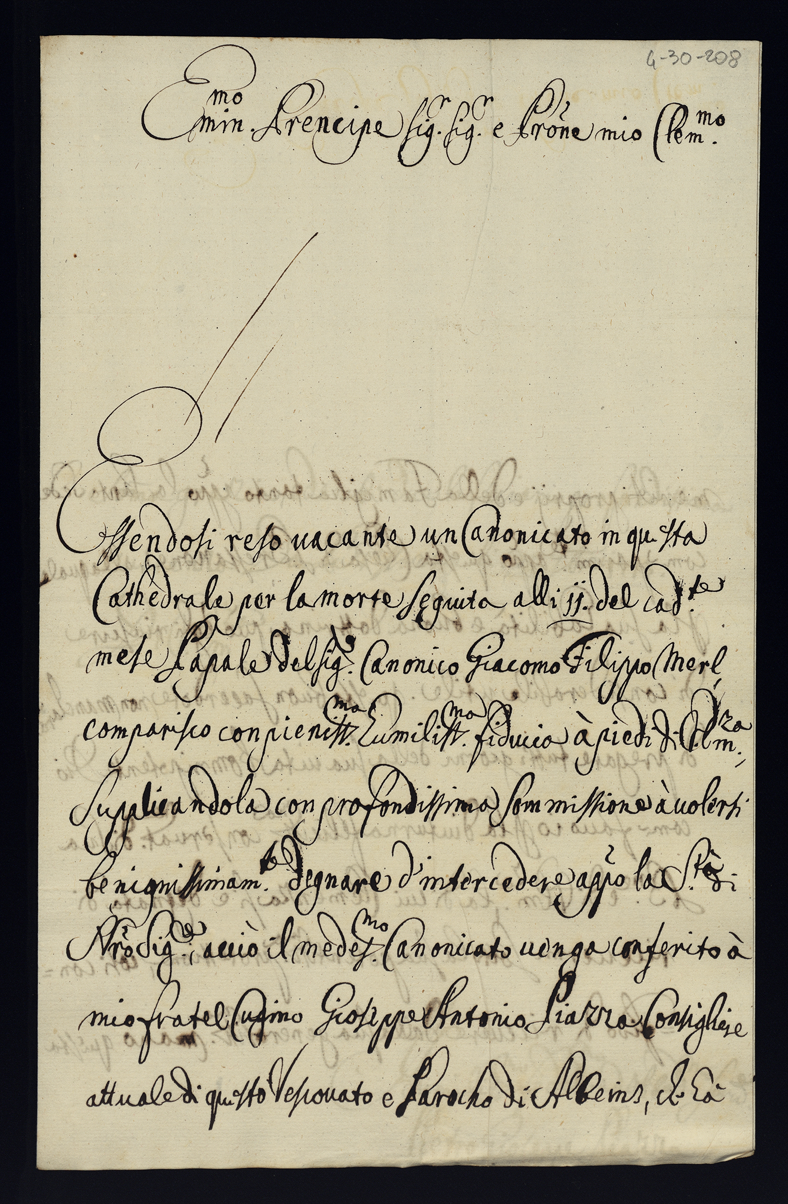 4-30-208
Emin.mo Prencipe Sig.r Sig.r e Prōne mio Clem.mo
Essendosi reso vacante un Canonicato in questa
Cathedrale per la morte seguita alli 11. del cad.te
mese Papale del Sig.r Canonico Giacomo Filippo Merl,
comparisco con pieniss.ma humiliss.ma fiducia à piedi di
supplicandola con profondissima sommissione à volersi
benignissimam.te degnare d'intercedere app̄o la S.tà di
Nr̄o Sig.re, acciò il medes.mo Canonicato venga conferito à
mio fratel Cugino Gioseppe Antonio Piazza Consigliere
attuale di questo Vescovato e Parocho di Albeins, che hà